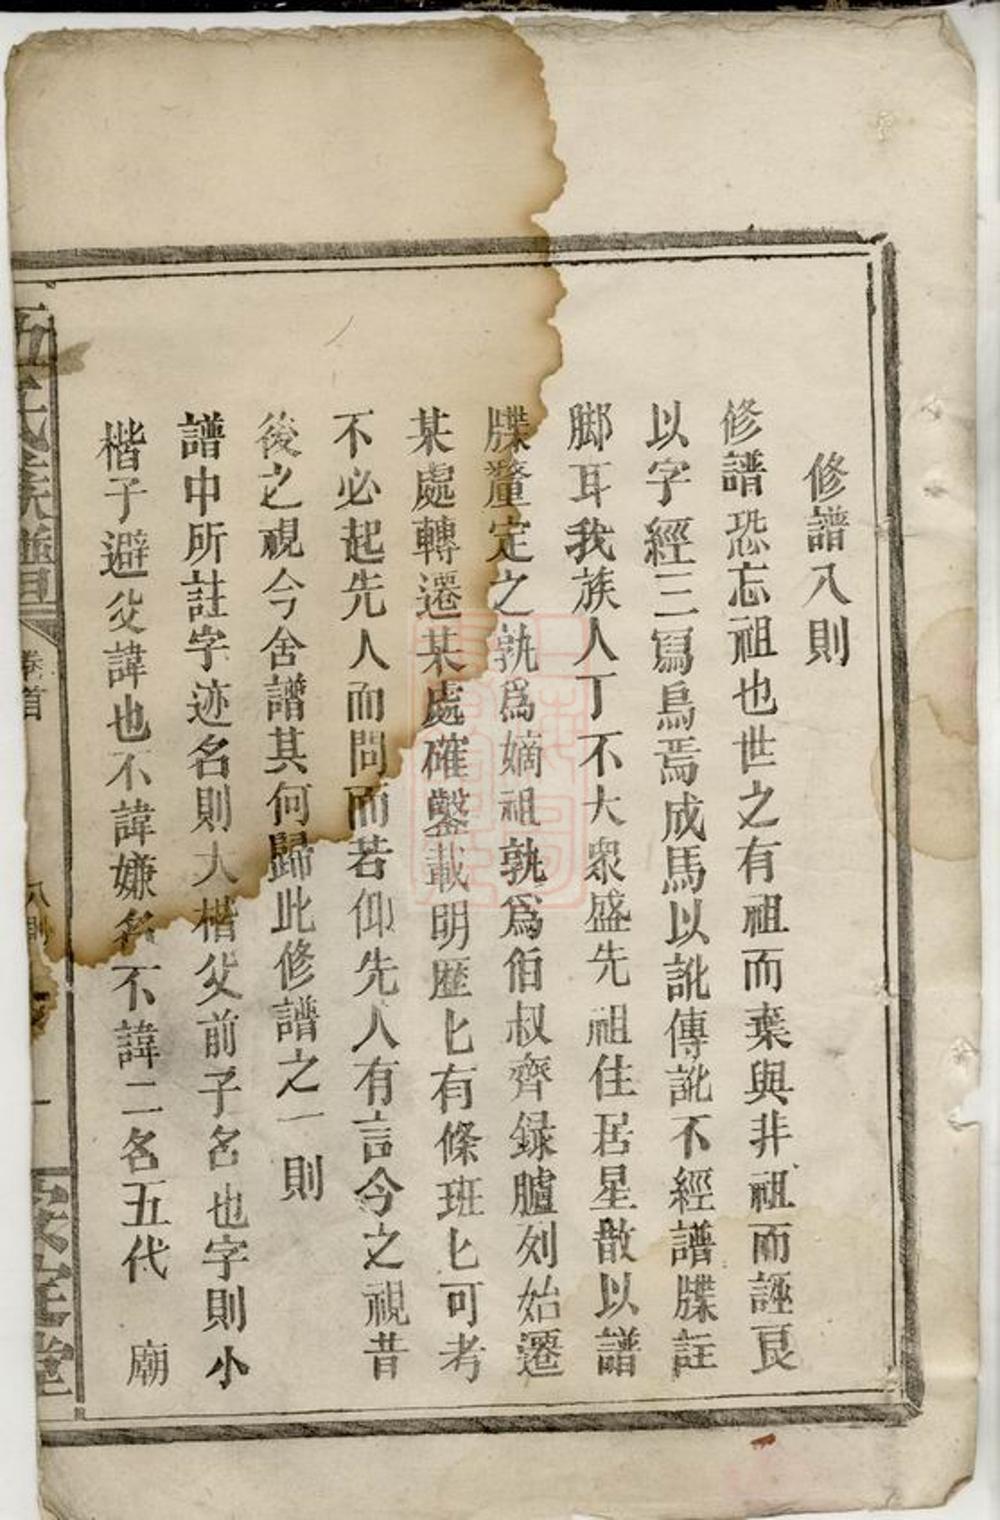 修譜八則
修譜恐忘祖也世之有祖而棄與非祖而誣良
以字經三寫烏焉成馬以訛傳訛不經譜牒註
脚耳我族人丁不大衆盛先祖住居星散以譜
牒釐定之孰爲嫡祖孰爲伯叔齊録臚列始遷
某處轉遷某處確鑿載明歷匕有條班匕可考
不必起先人而問而若仰先人有言今之視昔
後之視今舍譜其何歸此修譜之一則
譜中所註字迹名則大楷父前子名也字則小
楷子避父諱也不諱嫌名不諱二名五代 廟
伍氏族譜
卷首
八則
一
安定堂